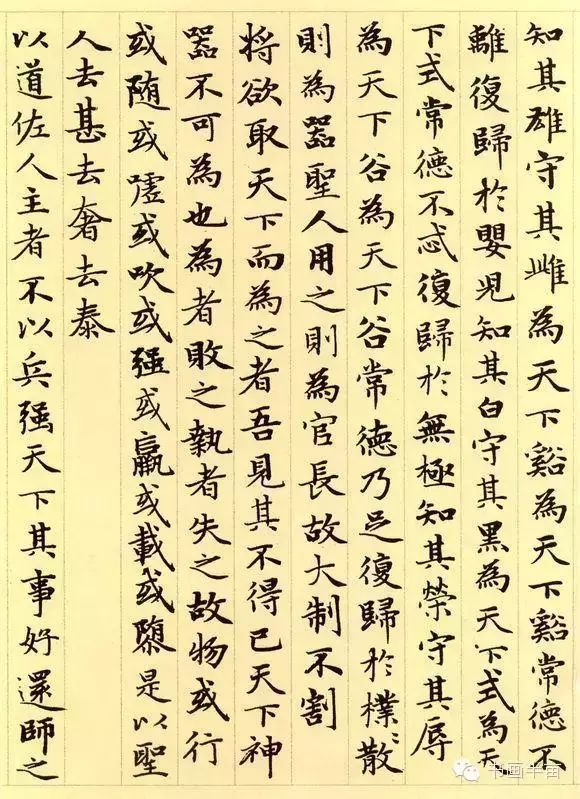 知其雄守其雌為天下谿為天下谿常德不
離復歸於嬰児知其白守其黑為天下式為天
下式常德不忒復歸於無極知其榮守其辱
為天下谷為天下谷常德乃足復歸於樸〻散
則為器聖人用之則為官長故大制不割
将欲取天下而為之者吾見其不得已天下神
器不可為也為者敗之執者失之故物或行
或随或嘘或吹或强或羸或載或隳是以聖
人去甚去奢去泰
以道佐人主者不以兵强天下其事好還師之
书画半亩